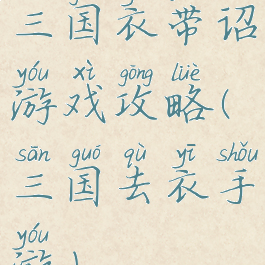 三国衣带诏
yóu xì gōng lüè
游戏攻略(
sān guó qù yī shǒu
三国去衣手
yóu
游)